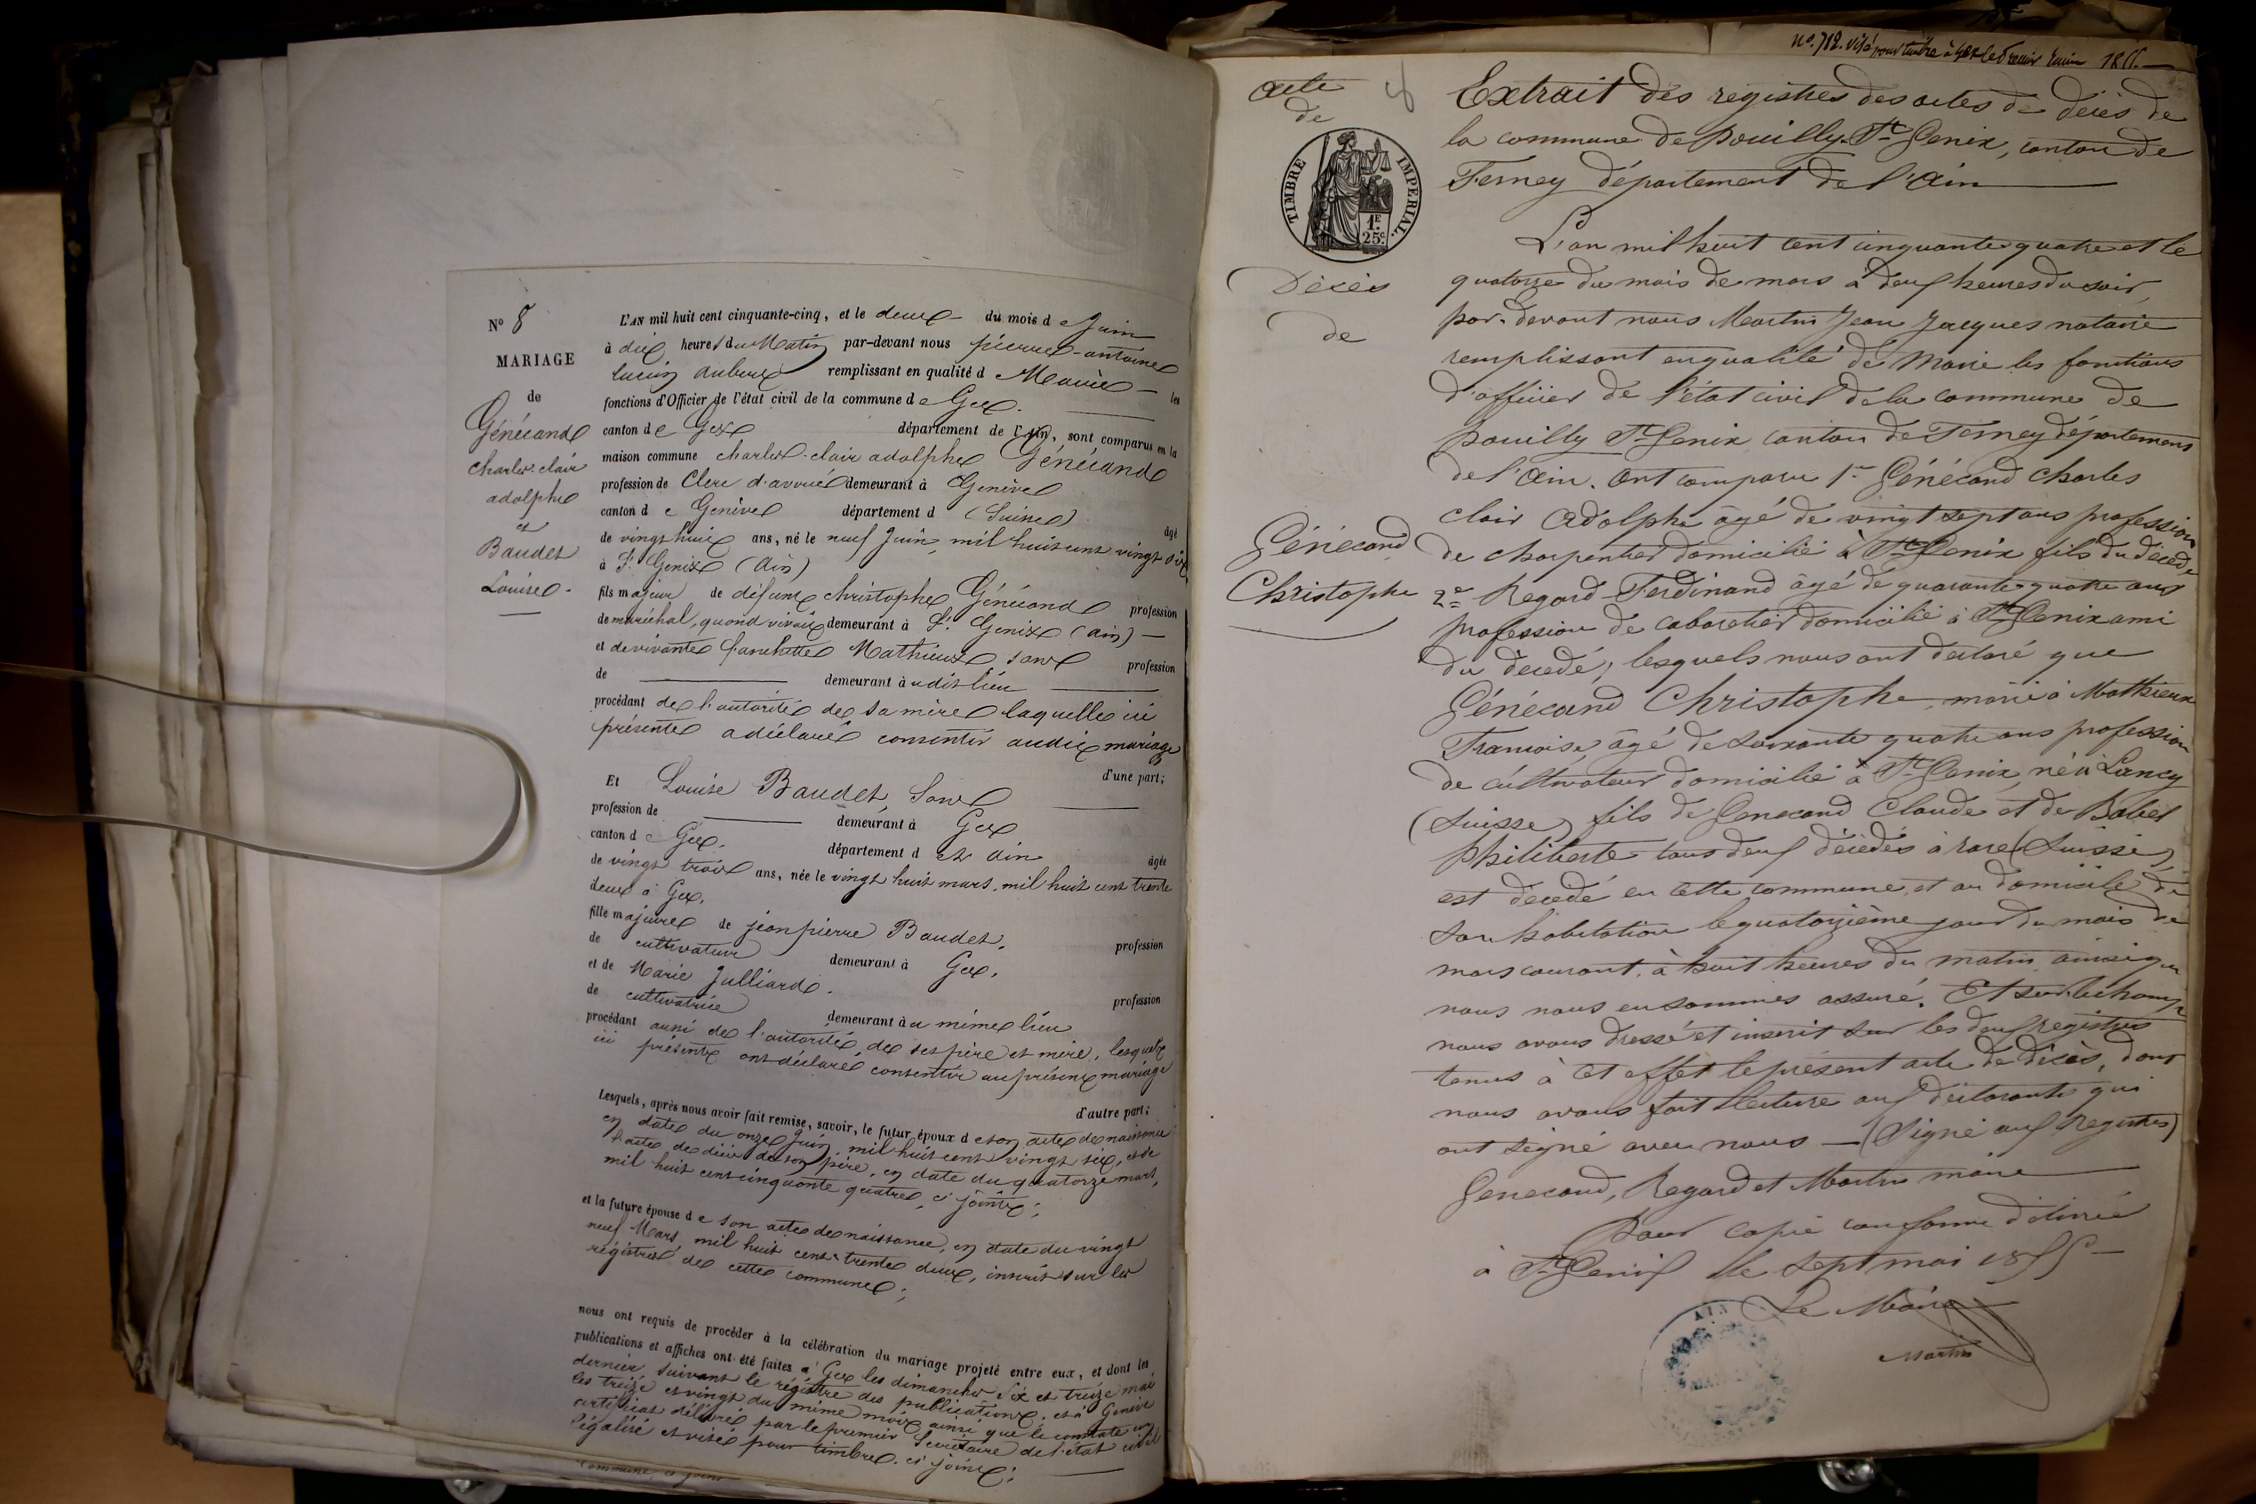 N° 8
MARIAGE
de
Génécand
Charles-clair
adolphe
et
Baudet
Louise.
L'AN mil huit cent cinquante-cinq, et le deux du mois de Juin
à dix heures du Matin par-devant nous pierre-antoine
lucien remplissant en qualité d Maire les
fonctions d'Officier de l'état civil de la commune de Gex.
canton de Gex département de l'Ain, sont comparus en la
maison commune charles-clair adolphe Génécand
profession de Clerc d'avoué demeurant à Genève
canton de Genève département d (Suisse) âgé
de vingt huit ans, né le neuf Juin, mil huit cent vingt six
à St Genix (Ain)
fils majeur de défunt christophe Génécand profession
de maréchal, quand vivait demeurant à St Genix (ain)
et de vivante fanchette Mathieux, sans profession
de demeurant à udit lieu
procédant de l'autorité de sa mère laquelle ici
présente a déclaré consentir audit mariage
d'une part;
Et Louise Baudet, Sans
profession de demeurant à Gex
canton de Gex. département d et ain âgée
de vingt trois ans, née le vingt huit mars, mil huit cent trente
deux à Gex.
fille majeure de jean pierre Baudet, profession
de cultivateur demeurant à Gex.
et de Marie Julliard. profession
de cultivatrice demeurant à u même lieu
procédant aussi de l'autorité de ses père et mère, lesquels
ici présents ont déclaré consentir au présent mariage
d'autre part;
Lesquels, après nous avoir fait remise, savoir, le futur époux de son acte de naissance
en date du onze Juin, mil huit cent vingt six, et de
l'acte de décès de son père, en date du quatorze mars,
mil huit cent cinquante quatre, ci joints;
et la future épouse de son acte de naissance, en date du vingt
neuf Mars, mil huit cent trente deux, inscrit sur les
registres de cette commune;
nous ont requis de procéder à la célébration du mariage projeté entre eux, et dont les
publications et affiches ont été faites à Gex les dimanches six et treize mai
dernier, suivant le régistre des publications, et à Genève
les treize et vingt du même mois ainsi que le constate un
certificat délivré par le premier Secrétaire de l'état civil
légalisé et visé pour timbre. ci joint;
N°. 712. visé pour timbre à Gex le Juin 1855.
acte
de
TIMBRE IMPERIAL.
1F.
25c.
Décès
de
Génécand
Christophe
Extrait des registres des actes de décès de
la commune de Pouilly-St Genix, canton de
Ferney département de l'Ain
L'an mil huit cent cinquante quatre et le
quatorze du mois de mars à deux heures du soir,
par-devant nous Martin Jean Jacques notaire
remplissant en qualité de Maire les fonctions
d'officier de l'état civil de la commune de
Pouilly St Genix canton de Ferney département
de l'Ain. Ont comparu 1er Génécand Charles
clair Adolphe âgé de vingt sept ans profession
de charpentier domicilié à St Genix fils du décédé
2e Regard Ferdinand âgé de quarante quatre ans
profession de cabaretier domicilié à St Genix ami
du décédé, lesquels nous ont déclaré que
Génécand Christophe, marié à Mathieux
Francoise, âgé de soixante quatre ans profession
de cultivateur domicilié à St Genix, né à Lancy
(Suisse) fils de Genecand Claude et de Babel
Philiberte tous deux décédés à (Suisse),
est décédé en cette commune et au domicile de
son habitation le quatorzième jour du mois de
mars courant, à huit heures du matin ainsi que
nous nous en sommes assuré. Et sur le champ
nous avons dressé et inscrit sur les deux registres
tenus à cet effet le présent acte de décès, dont
nous avons fait lecture aux déclarants qui
ont signé avec nous — (Signé aux Registres)
Genecand, Regard et Martin maire
Pour copie conforme délivrée
à St Genix le sept mai 1855
Le Maire
Martin
AIN